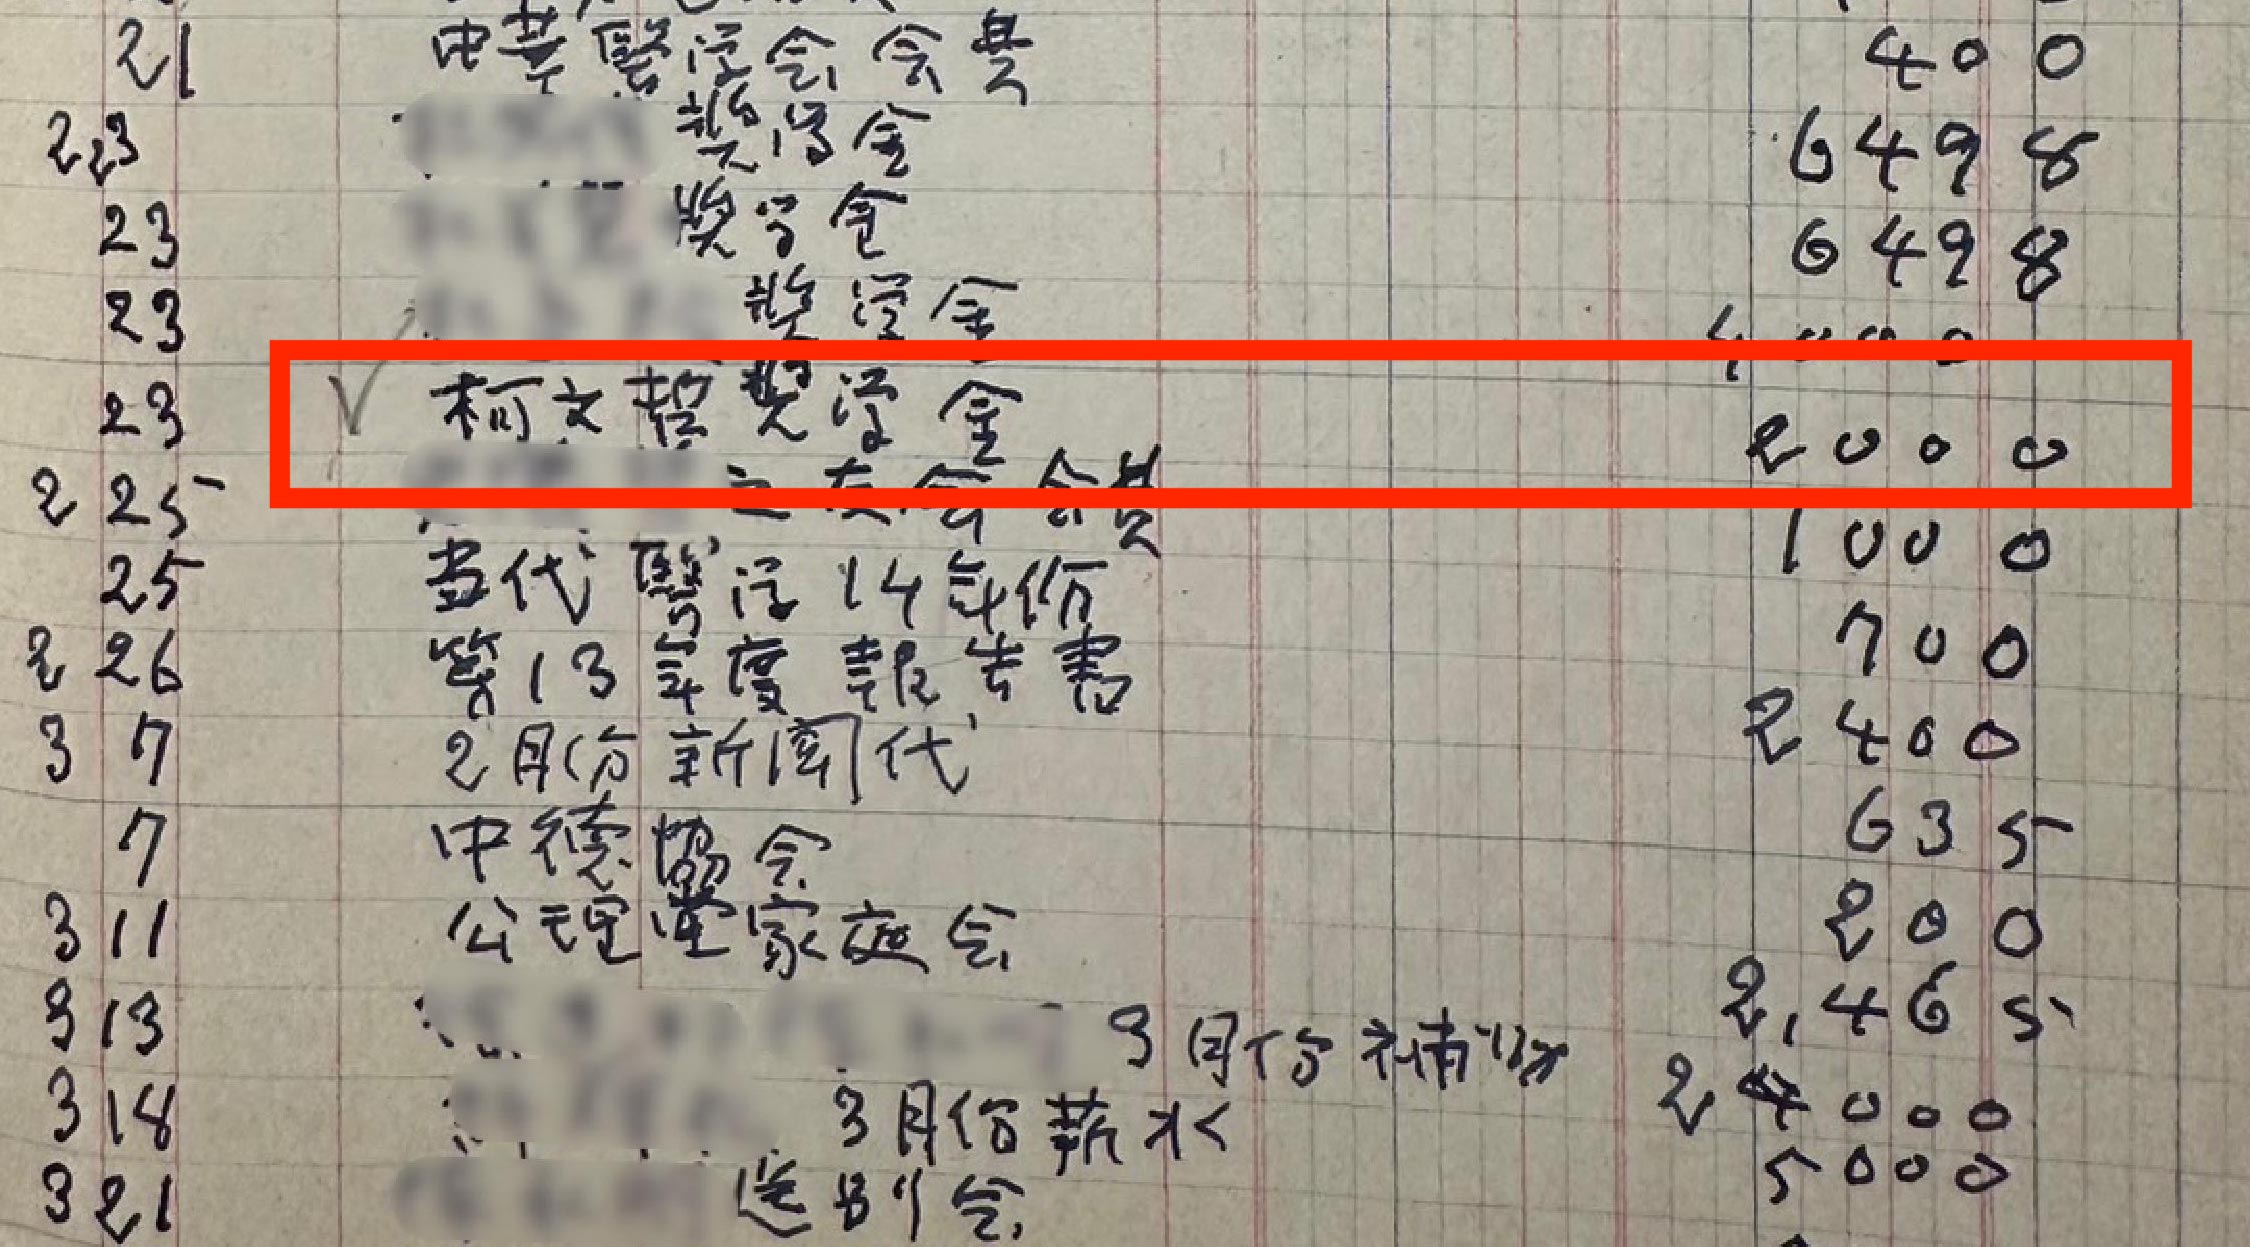 21 中華醫学会会費 400
2 23 奨学金 6498
23 奨学金 6498
23 奨学金 4000
23 柯文哲奨学金 2000
2 25 之友会会費 1000
25 當代醫学14年份 700
2 26 第13年度報告書 2400
3 7 2月份新聞代 635
7 中德協会 200
3 11 公理堂家庭会 2,465
3 13 3月份補助 24000
3 18 3月份薪水 5000
3 21 送別会